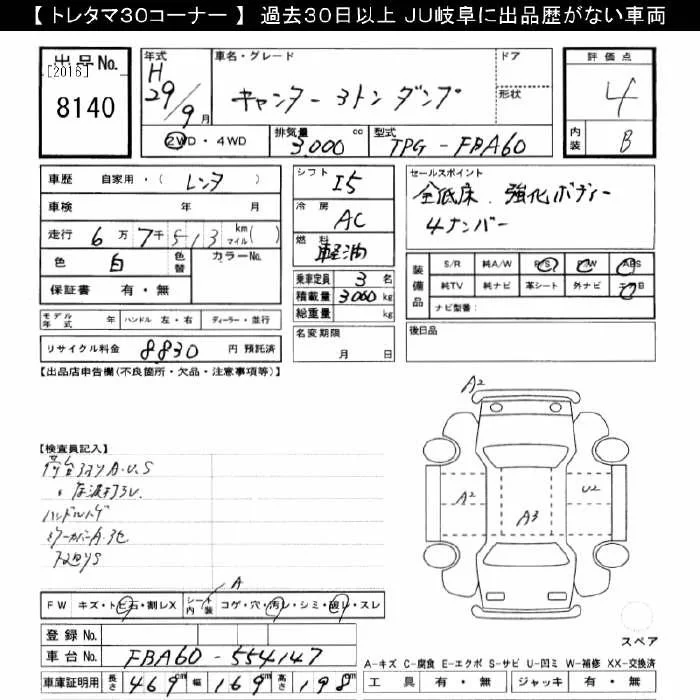 【トレタマ30コーナー】 過去30日以上 JU岐阜に出品歴がない車両
出品No.
[2016]
8140
年式
H
29/9月
車名・グレード
キャンター 3トン ダンプ
ドア
形状
評価点
4
内装
B
2WD・4WD
排気量
3,000 cc
型式
TPG-FBA60
車歴 自家用・( レンタ )
車検 年 月
走行 6万7千513 km マイル( )
色 白 色替 カラーNo.
保証書 有・無
モデル年式 年 ハンドル 左・右 ディーラー・並行
リサイクル料金 8830 円 預託済
シフト I5
冷房 AC
燃料 軽油
乗車定員 3 名
積載量 3000 kg
総重量 kg
名変期限
月 日
セールスポイント
全低床、強化ボディー
4ナンバー
装備品
S/R 純A/W P/S P/W ABS
純TV 純ナビ 革シート 外ナビ エアB
ナビ型番:
後日品
【出品店申告欄(不良箇所・欠品・注意事項等)】
【検査員記入】
A2
A2
U2
A3
A
FW キズ・トビ石・割レX シート内装 コゲ・穴・汚レ・シミ・破レ・スレ
登録No.
車台No. FBA60-554147
車庫証明用 長さ 469 cm 幅 169 cm 高さ 198 cm
スペア
A-キズ C-腐食 E-エクボ S-サビ U-凹ミ W-補修 XX-交換済
工具 有・無 ジャッキ 有・無